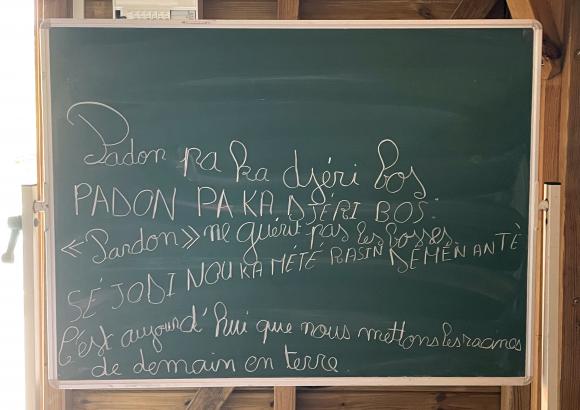 Padon pa ka djéri bos
PADON PA KA DJÉRI BOS.
« Pardon » ne guérit pas les bosses
SÉ JODI NOU KA MÉTÉ RASIN DÈMEN AN TÈ
C'est aujourd'hui que nous mettons les racines
de demain en terre.